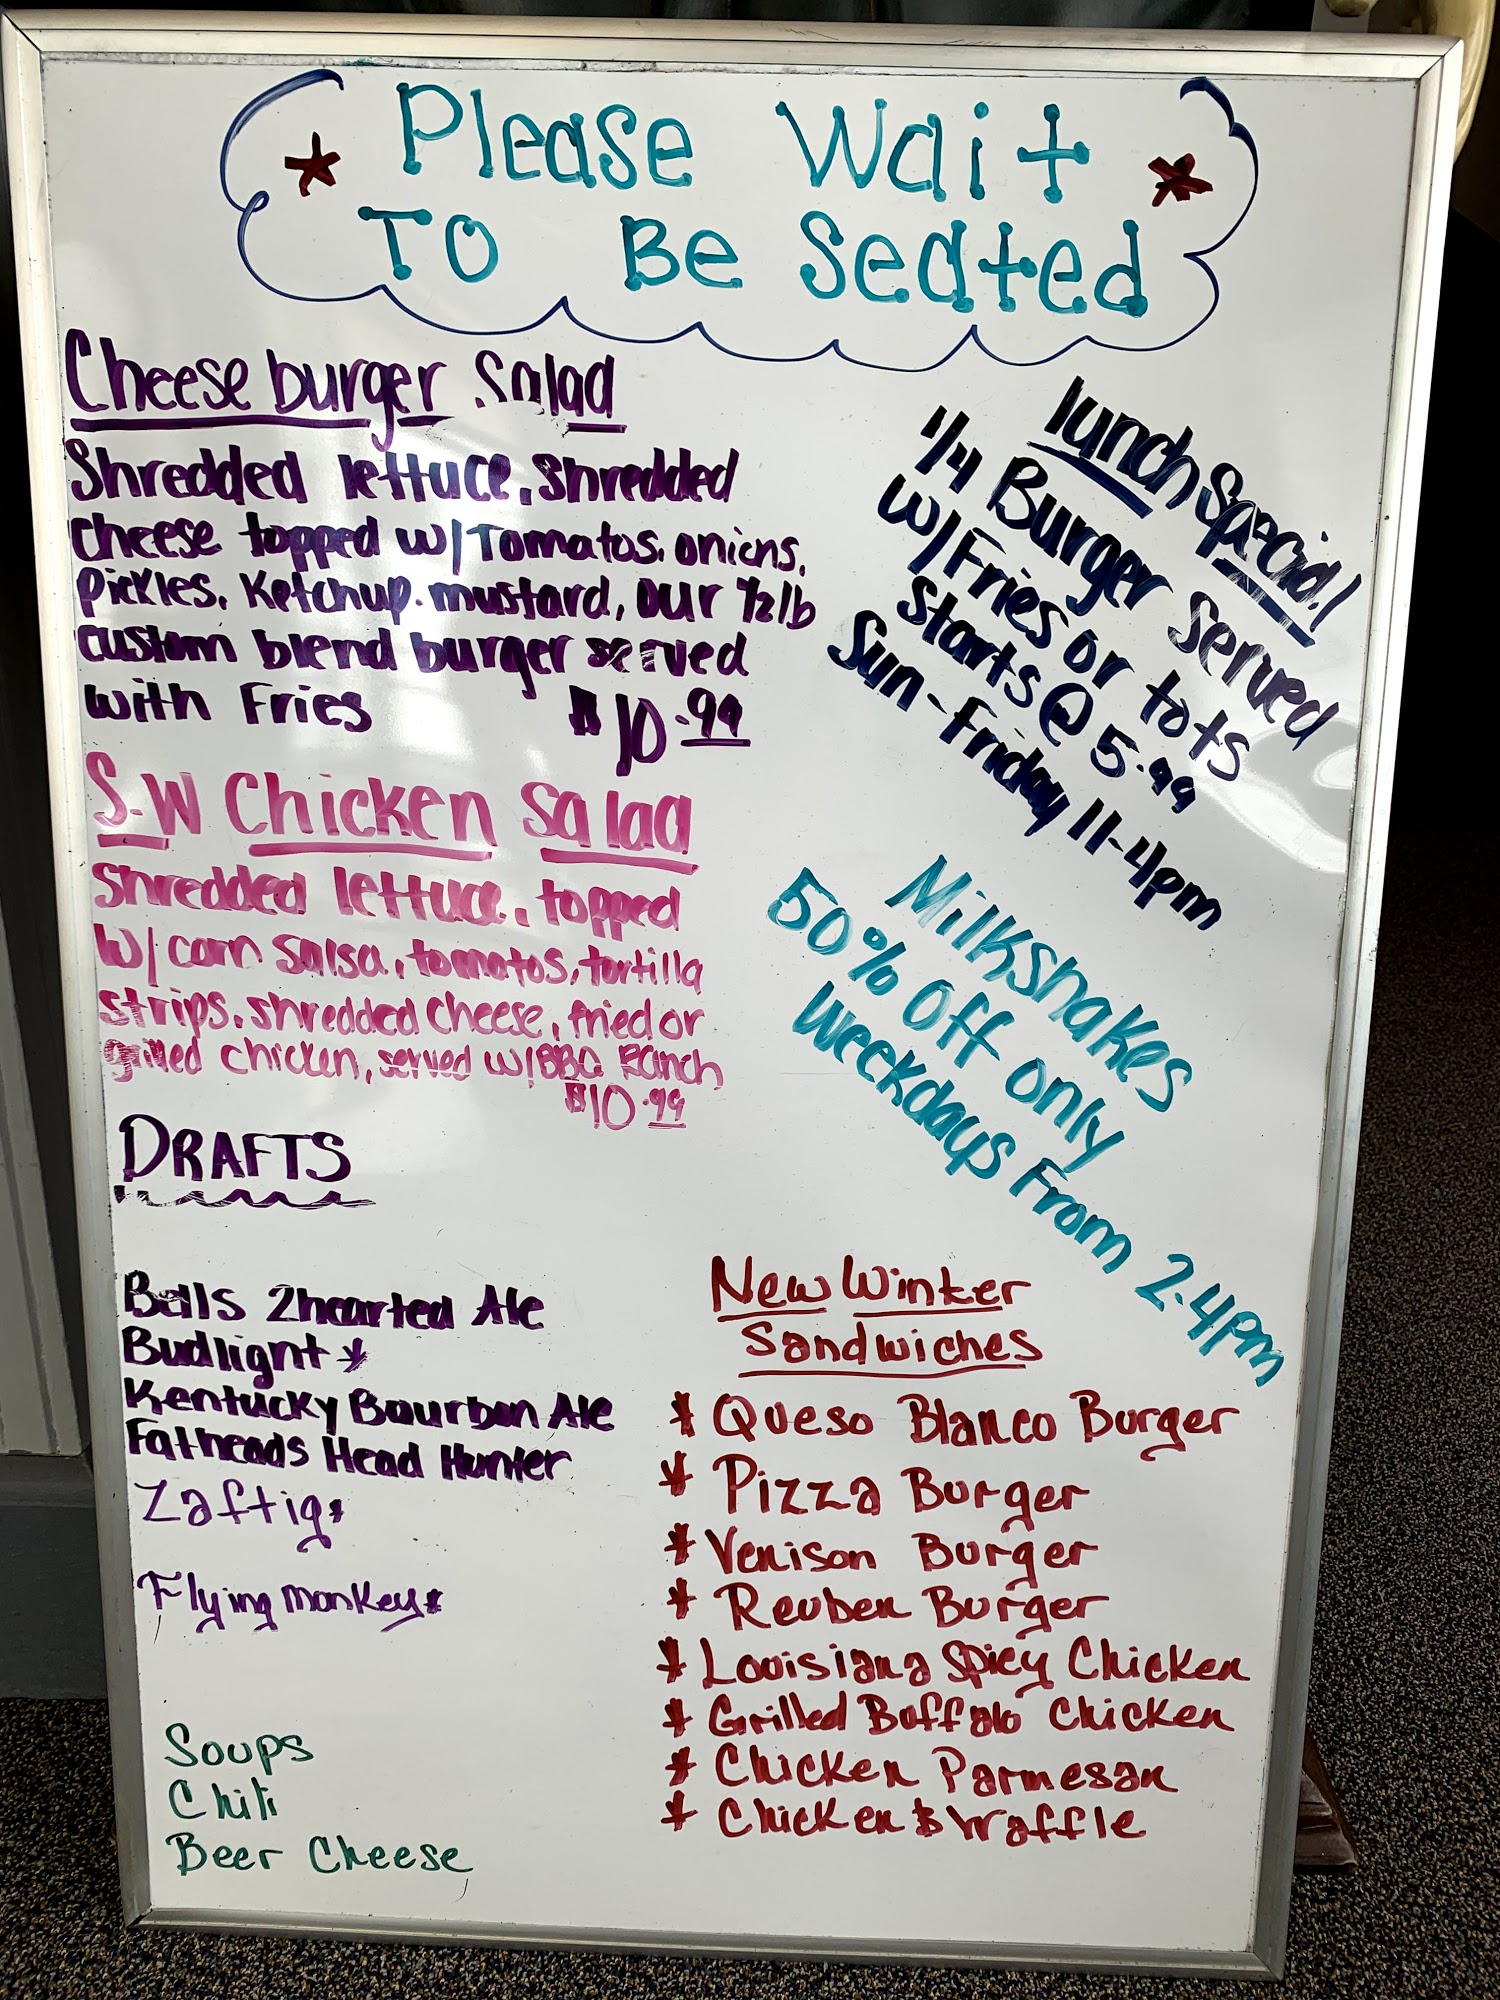 Please Wait
To Be Seated
Cheeseburger Salad
Shredded lettuce, shredded
cheese topped w/Tomatos, onions,
pickles, ketchup, mustard, our 1/2 lb
custom blend burger served
with Fries $10.99
S.W Chicken Salad
Shredded lettuce, topped
w/ corn salsa, tomatos, tortilla
strips, shredded cheese, fried or
grilled chicken, served w/BBQ Ranch
$10.99
DRAFTS
Bells 2hearted Ale
Budlight *
Kentucky Bourbon Ale
Fatheads Head Hunter
Zaftig *
Flying Monkey *
Soups
Chili
Beer Cheese
lunch Special!
1/4 Burger served
w/Fries or tots
starts @ 5.99
Sun-Friday 11-4pm
Milkshakes
50% Off only
weekdays From 2-4pm
New Winter
Sandwiches
* Queso Blanco Burger
* Pizza Burger
* Venison Burger
* Reuben Burger
* Louisiana Spicy Chicken
* Grilled Buffalo Chicken
* Chicken Parmesan
* Chicken & Waffle